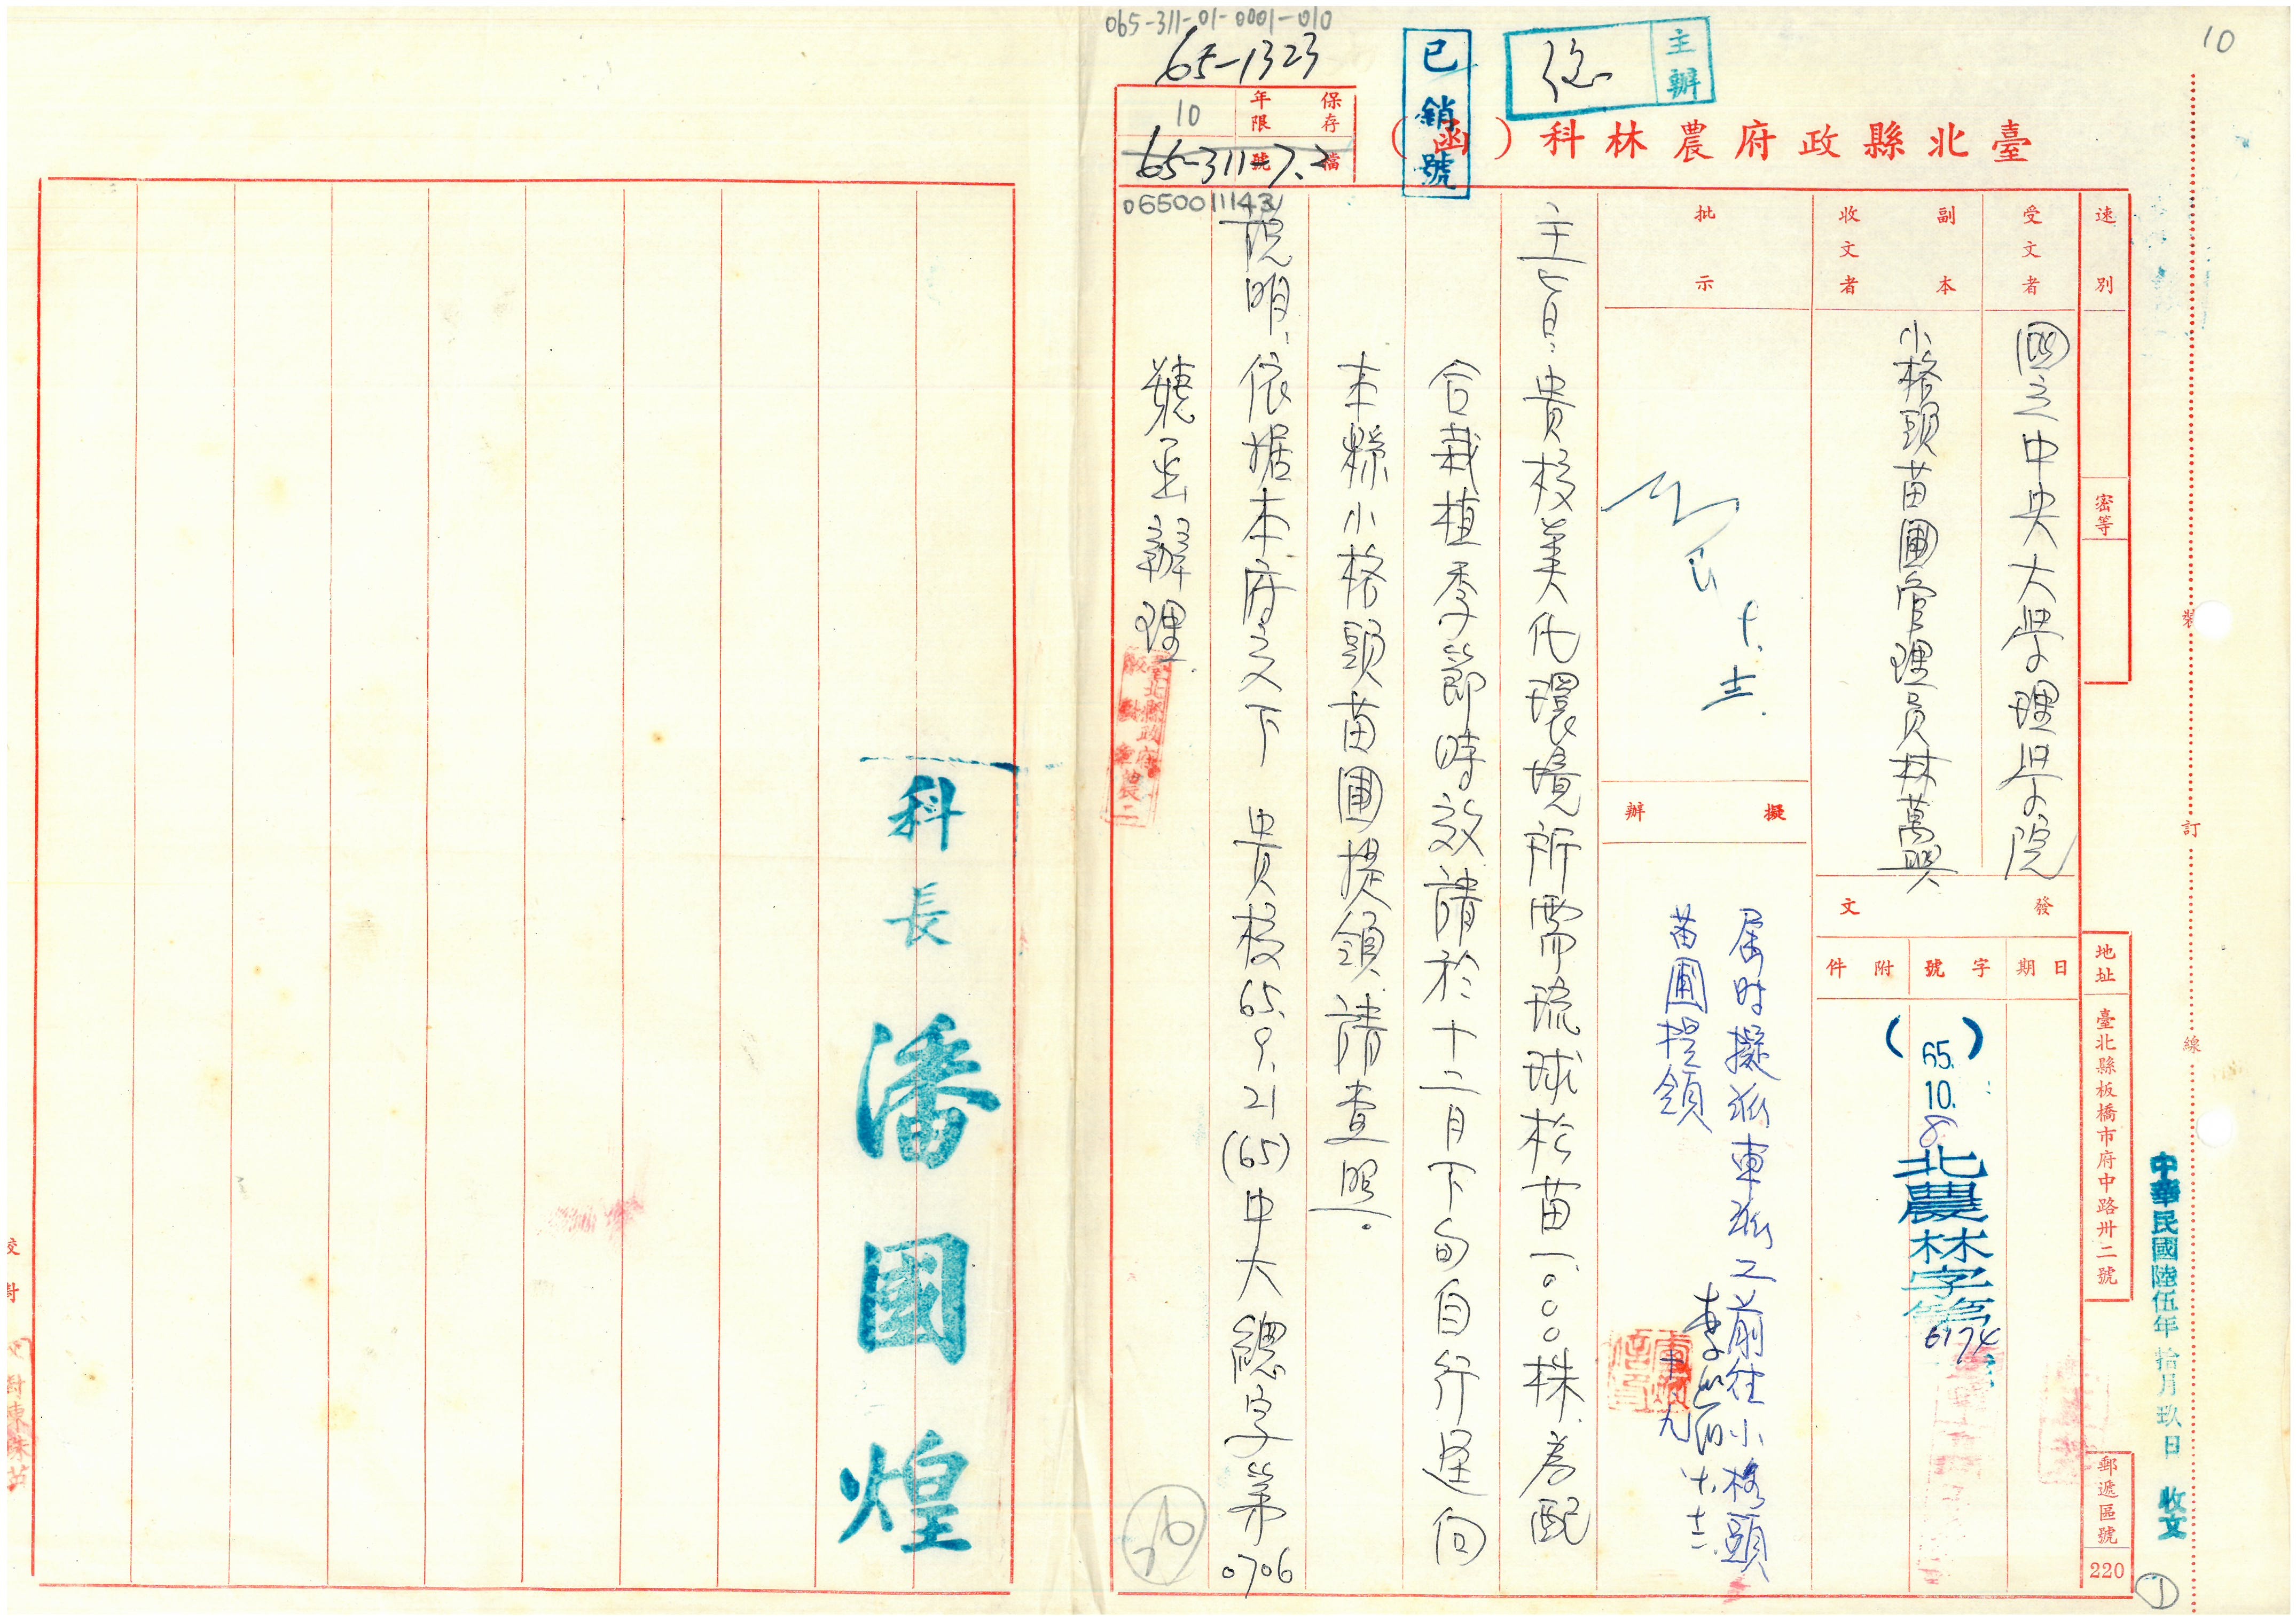 065-311-01-0001-010
65-1323
10
已銷號
主辦
保存年限
10
檔號
65-311-7.2
0650011143
臺北縣政府農林科(函)
速別
密等
地址
臺北縣板橋市府中路卅二號
郵遞區號
220
受文者
國立中央大學理學院
副本收文者
小格頭苗圃管理員林萬興
發文
日期
字號
附件
(65.10.8)
北農林字第
6174
批示
十.十二.
擬辦
屆時擬派車派工前往小格頭
苗圃提領
十.十二.
主旨:貴校美化環境所需琉球松苗一.〇〇〇株,為配
合栽植季節時效請於十二月下旬自行逕向
本縣小格頭苗圃提領,請查照。
說明:依據本府交下 貴校65.9.21(65)中大總字第0706
號函辦理.
科長潘國煌
中華民國陸伍年拾月玖日 收文
裝
訂
線
校對
①